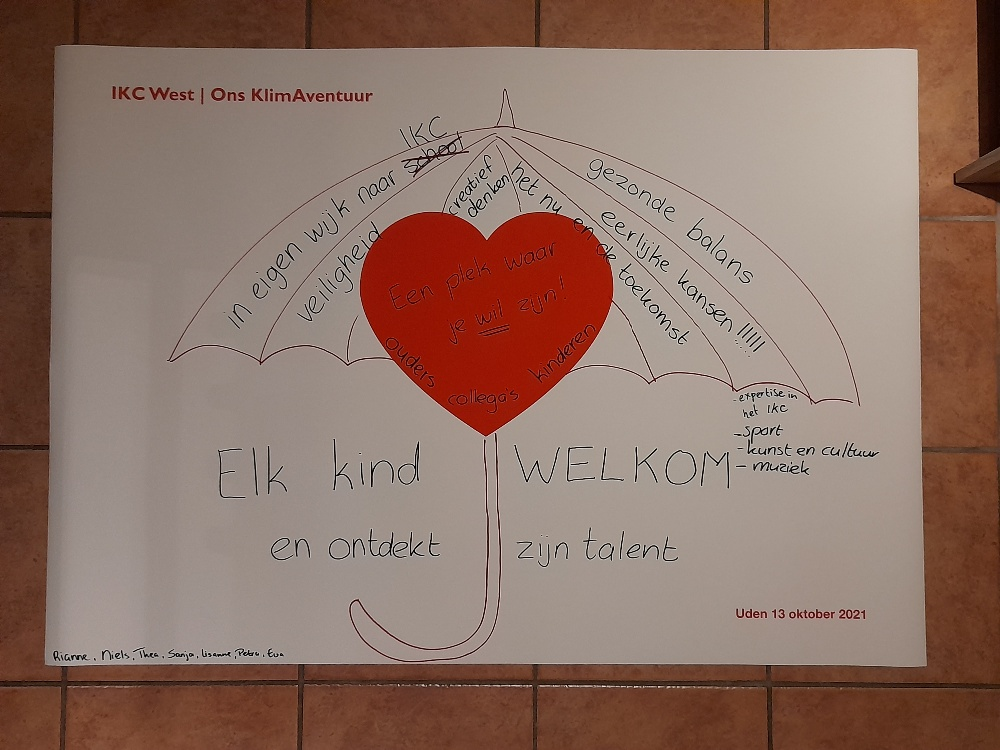 IKC West | Ons KlimAventuur
IKC
school
in eigen wijk naar
veiligheid
creatief
denken
het nu en de toekomst
eerlijke kansen !!!!!
gezonde balans
Een plek waar
je wil zijn!
ouders collega's kinderen
- expertise in
het IKC
- Sport
- kunst en cultuur
- muziek
Elk kind WELKOM
en ontdekt zijn talent
Uden 13 oktober 2021
Rianne, Niels, Thea, Sanja, Lisanne, Petra, Eva